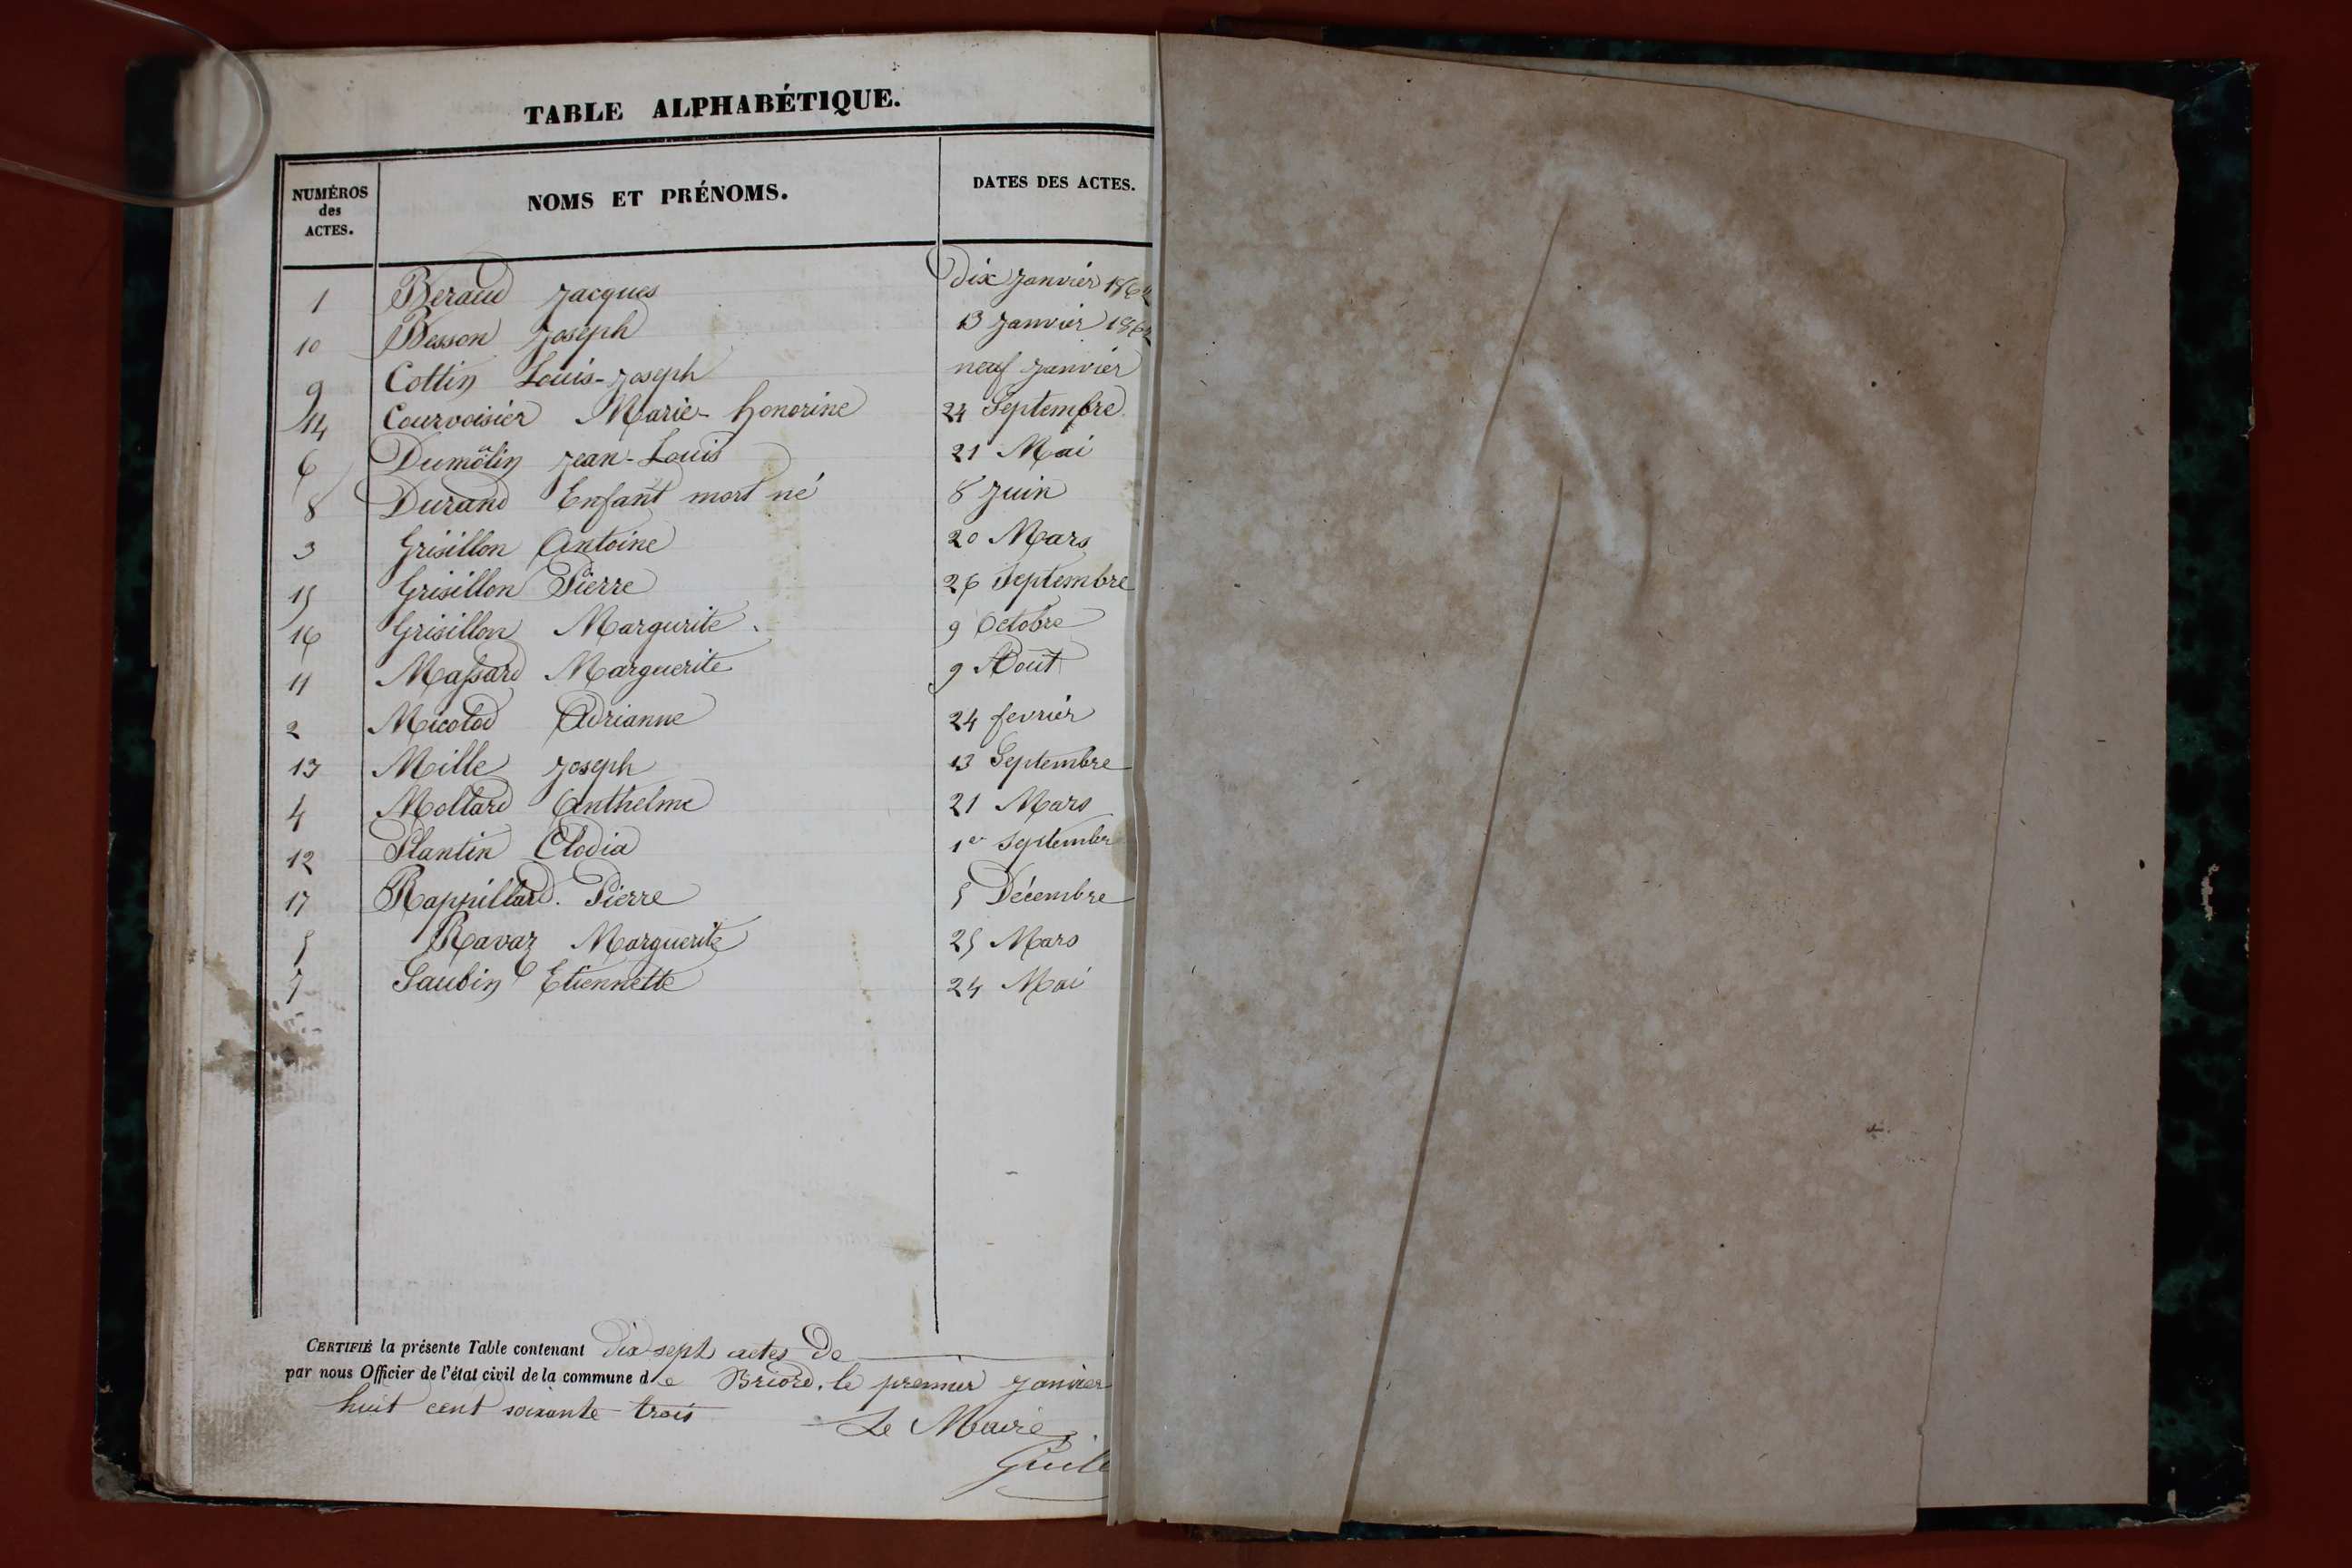 TABLE ALPHABÉTIQUE.
NUMÉROS des ACTES. NOMS ET PRÉNOMS. DATES DES ACTES.
1 Beraud Jacques Dix Janvier 186
10 Besson Joseph 13 Janvier 186
9 Cottin Louis-Joseph neuf Janvier
14 Courvoisier Marie-honorine 24 Septembre
6 Dumolin Jean-Louis 21 Mai
8 Durand Enfant mort né 8 Juin
3 Grisillon Antoine 20 Mars
15 Grisillon Pierre 26 Septembre
16 Grisillon Margurite 9 Octobre
11 Massard Marguerite 9 Aout
2 Micolod Adrianne 24 fevrier
13 Mille Joseph 13 Septembre
4 Mollard Anthelme 21 Mars
12 Plantin Clodia 1er Septembre
17 Rappillard. Pierre 5 Décembre
5 Ravaz Marguerite 25 Mars
7 Saubin Etiennette 24 Mai
CERTIFIÉ la présente Table contenant Dix sept actes de
par nous Officier de l'état civil de la commune de Briord, le premier Janvier
huit cent soixante trois Le Maire